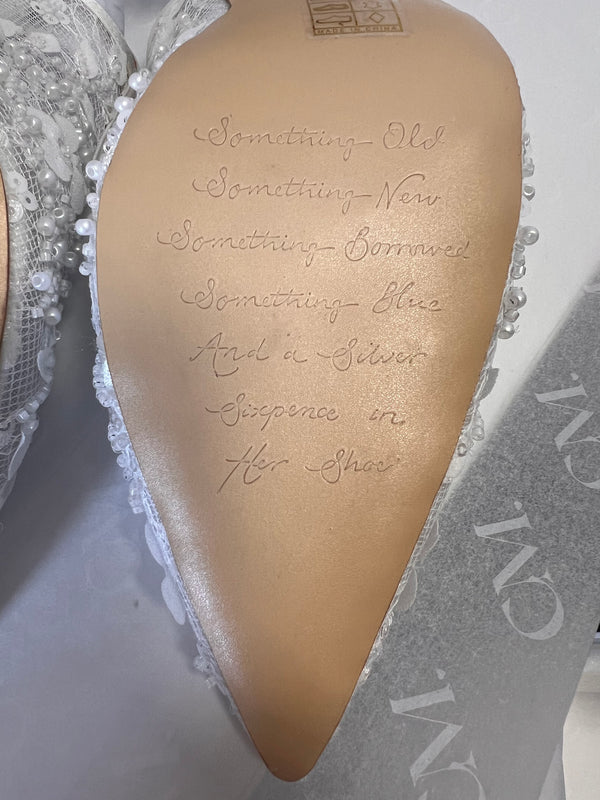 MADE IN CHINA
Something Old
Something New
Something Borrowed
Something Blue
And a Silver
Sixpence in
Her Shoe